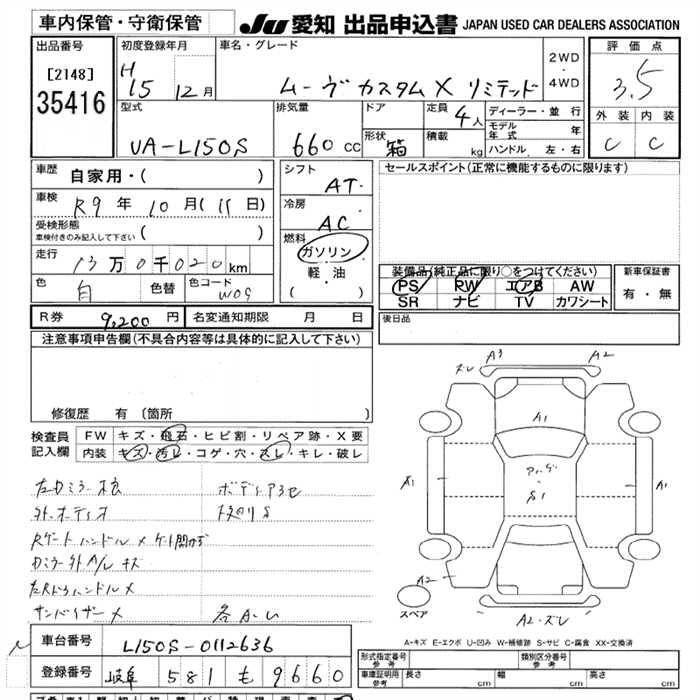 車内保管・守衛保管
JU 愛知 出品申込書 JAPAN USED CAR DEALERS ASSOCIATION
出品番号
[2148]
35416
初度登録年月
H 15 12 月
車名・グレード
ムーヴ カスタム X リミテッド
2WD
4WD
評価点
3.5
外装 内装
C C
型式
UA-L150S
排気量
660 cc
ドア
形状 箱
定員 4人
積載 kg
ディーラー・並行
モデル年式 年
ハンドル 左・右
車歴
自家用・( )
車検
R9 年 10 月(11 日)
受検形態
車検付きのみ記入して下さい ( )
走行
13万0千020km
色
白
色替
色コード
W09
シフト
AT
冷房
AC
燃料
ガソリン
軽・油
( )
セールスポイント(正常に機能するものに限ります)
装備品(純正品に限り○をつけてください)
PS PW エアB AW
SR ナビ TV カワシート
新車保証書
有・無
R券 9,200 円
名変通知期限 月 日
後日品
注意事項申告欄(不具合内容等は具体的に記入して下さい)
修復歴 有 (箇所 )
検査員記入欄
FW キズ・飛石・ヒビ割・リペア跡・X要
内装 キズ・汚レ・コゲ・穴・スレ・キレ・破レ
外.オーディオ
Rゲートハンドル X
サンドバイザー X
ズレ A3 A2
A1
A1
A1
A2
A2・ズレ
スペア
A-キズ E-エクボ U-凹み W-補修跡 S-サビ C-腐食 XX-交換済
車台番号
L150S-0112636
登録番号
岐阜 581 も 9660
形式指定番号 参考
類別区分番号 参考
車庫証明用 参考 長さ cm 幅 cm 高さ cm